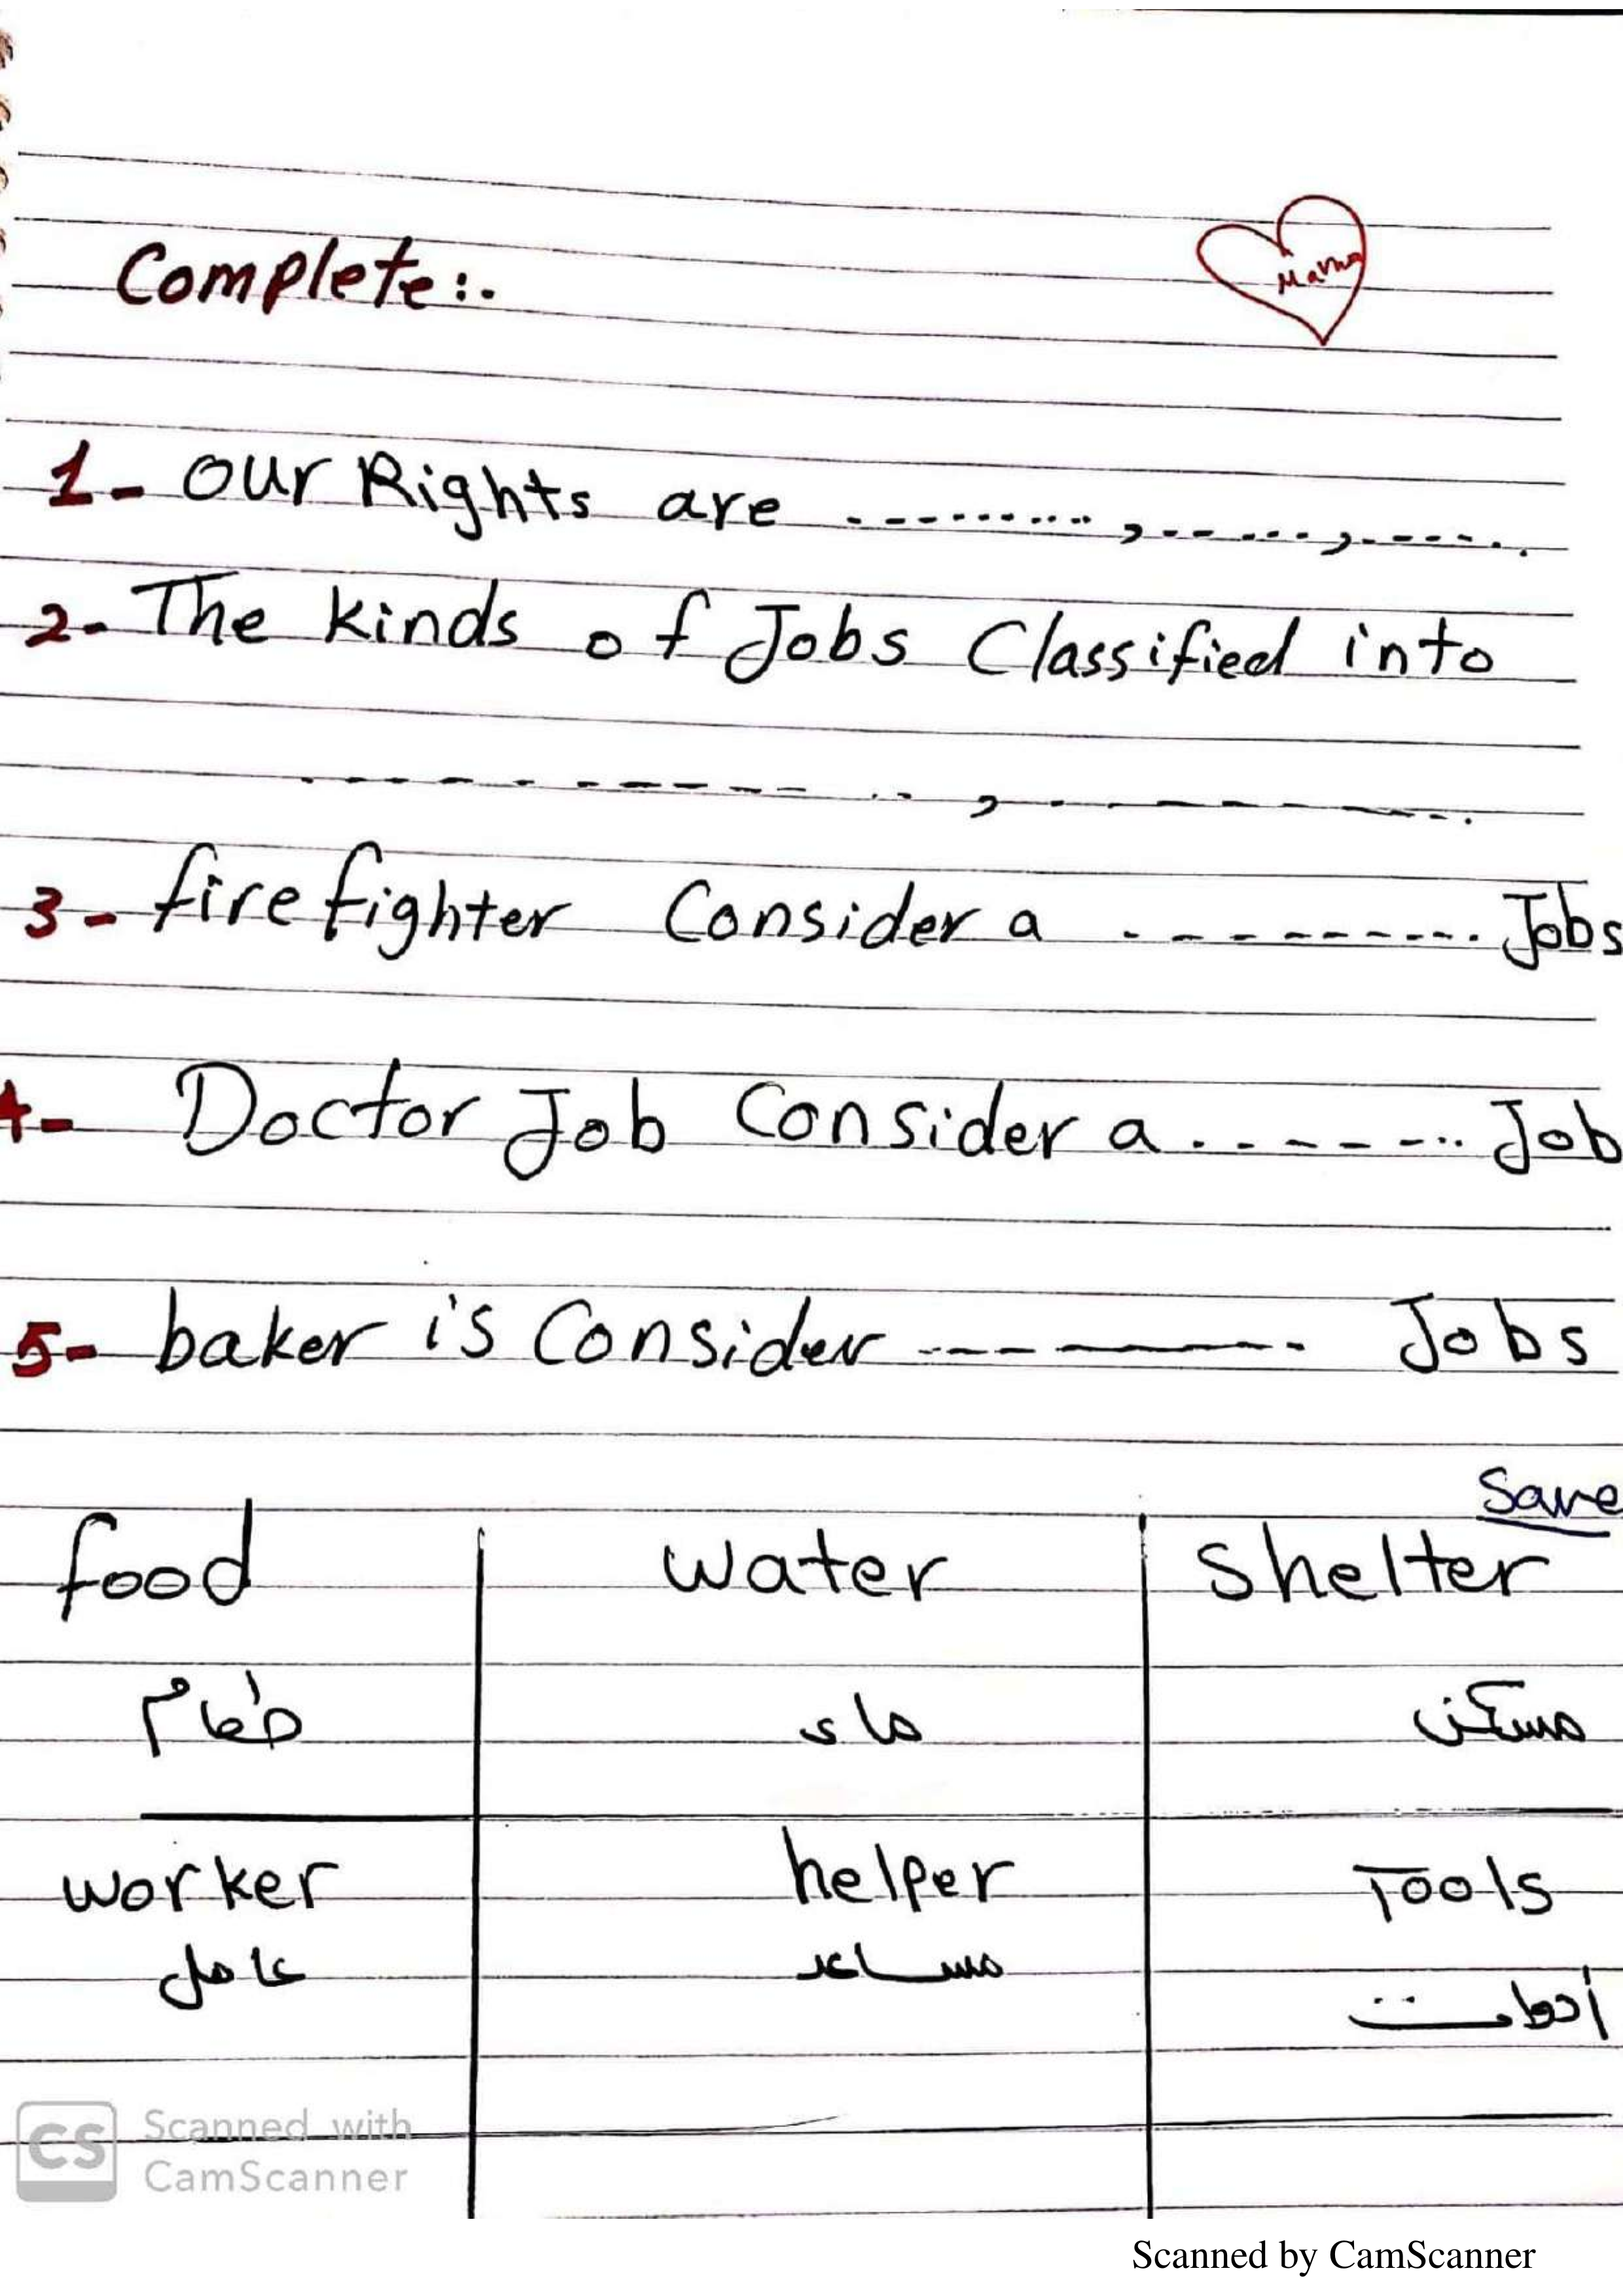 Complete:.
Mama
1- Our Rights are ..........,......,.......
2- The kinds of Jobs Classified into
..............,...........
3- firefighter Consider a .......... Jobs
4- Doctor Job Consider a ........ Job
5- baker is Consider .......... Jobs
Save
food water shelter
طعام ماء مسكن
worker helper Tools
عامل مساعد أدوات
CS Scanned with
CamScanner
Scanned by CamScanner